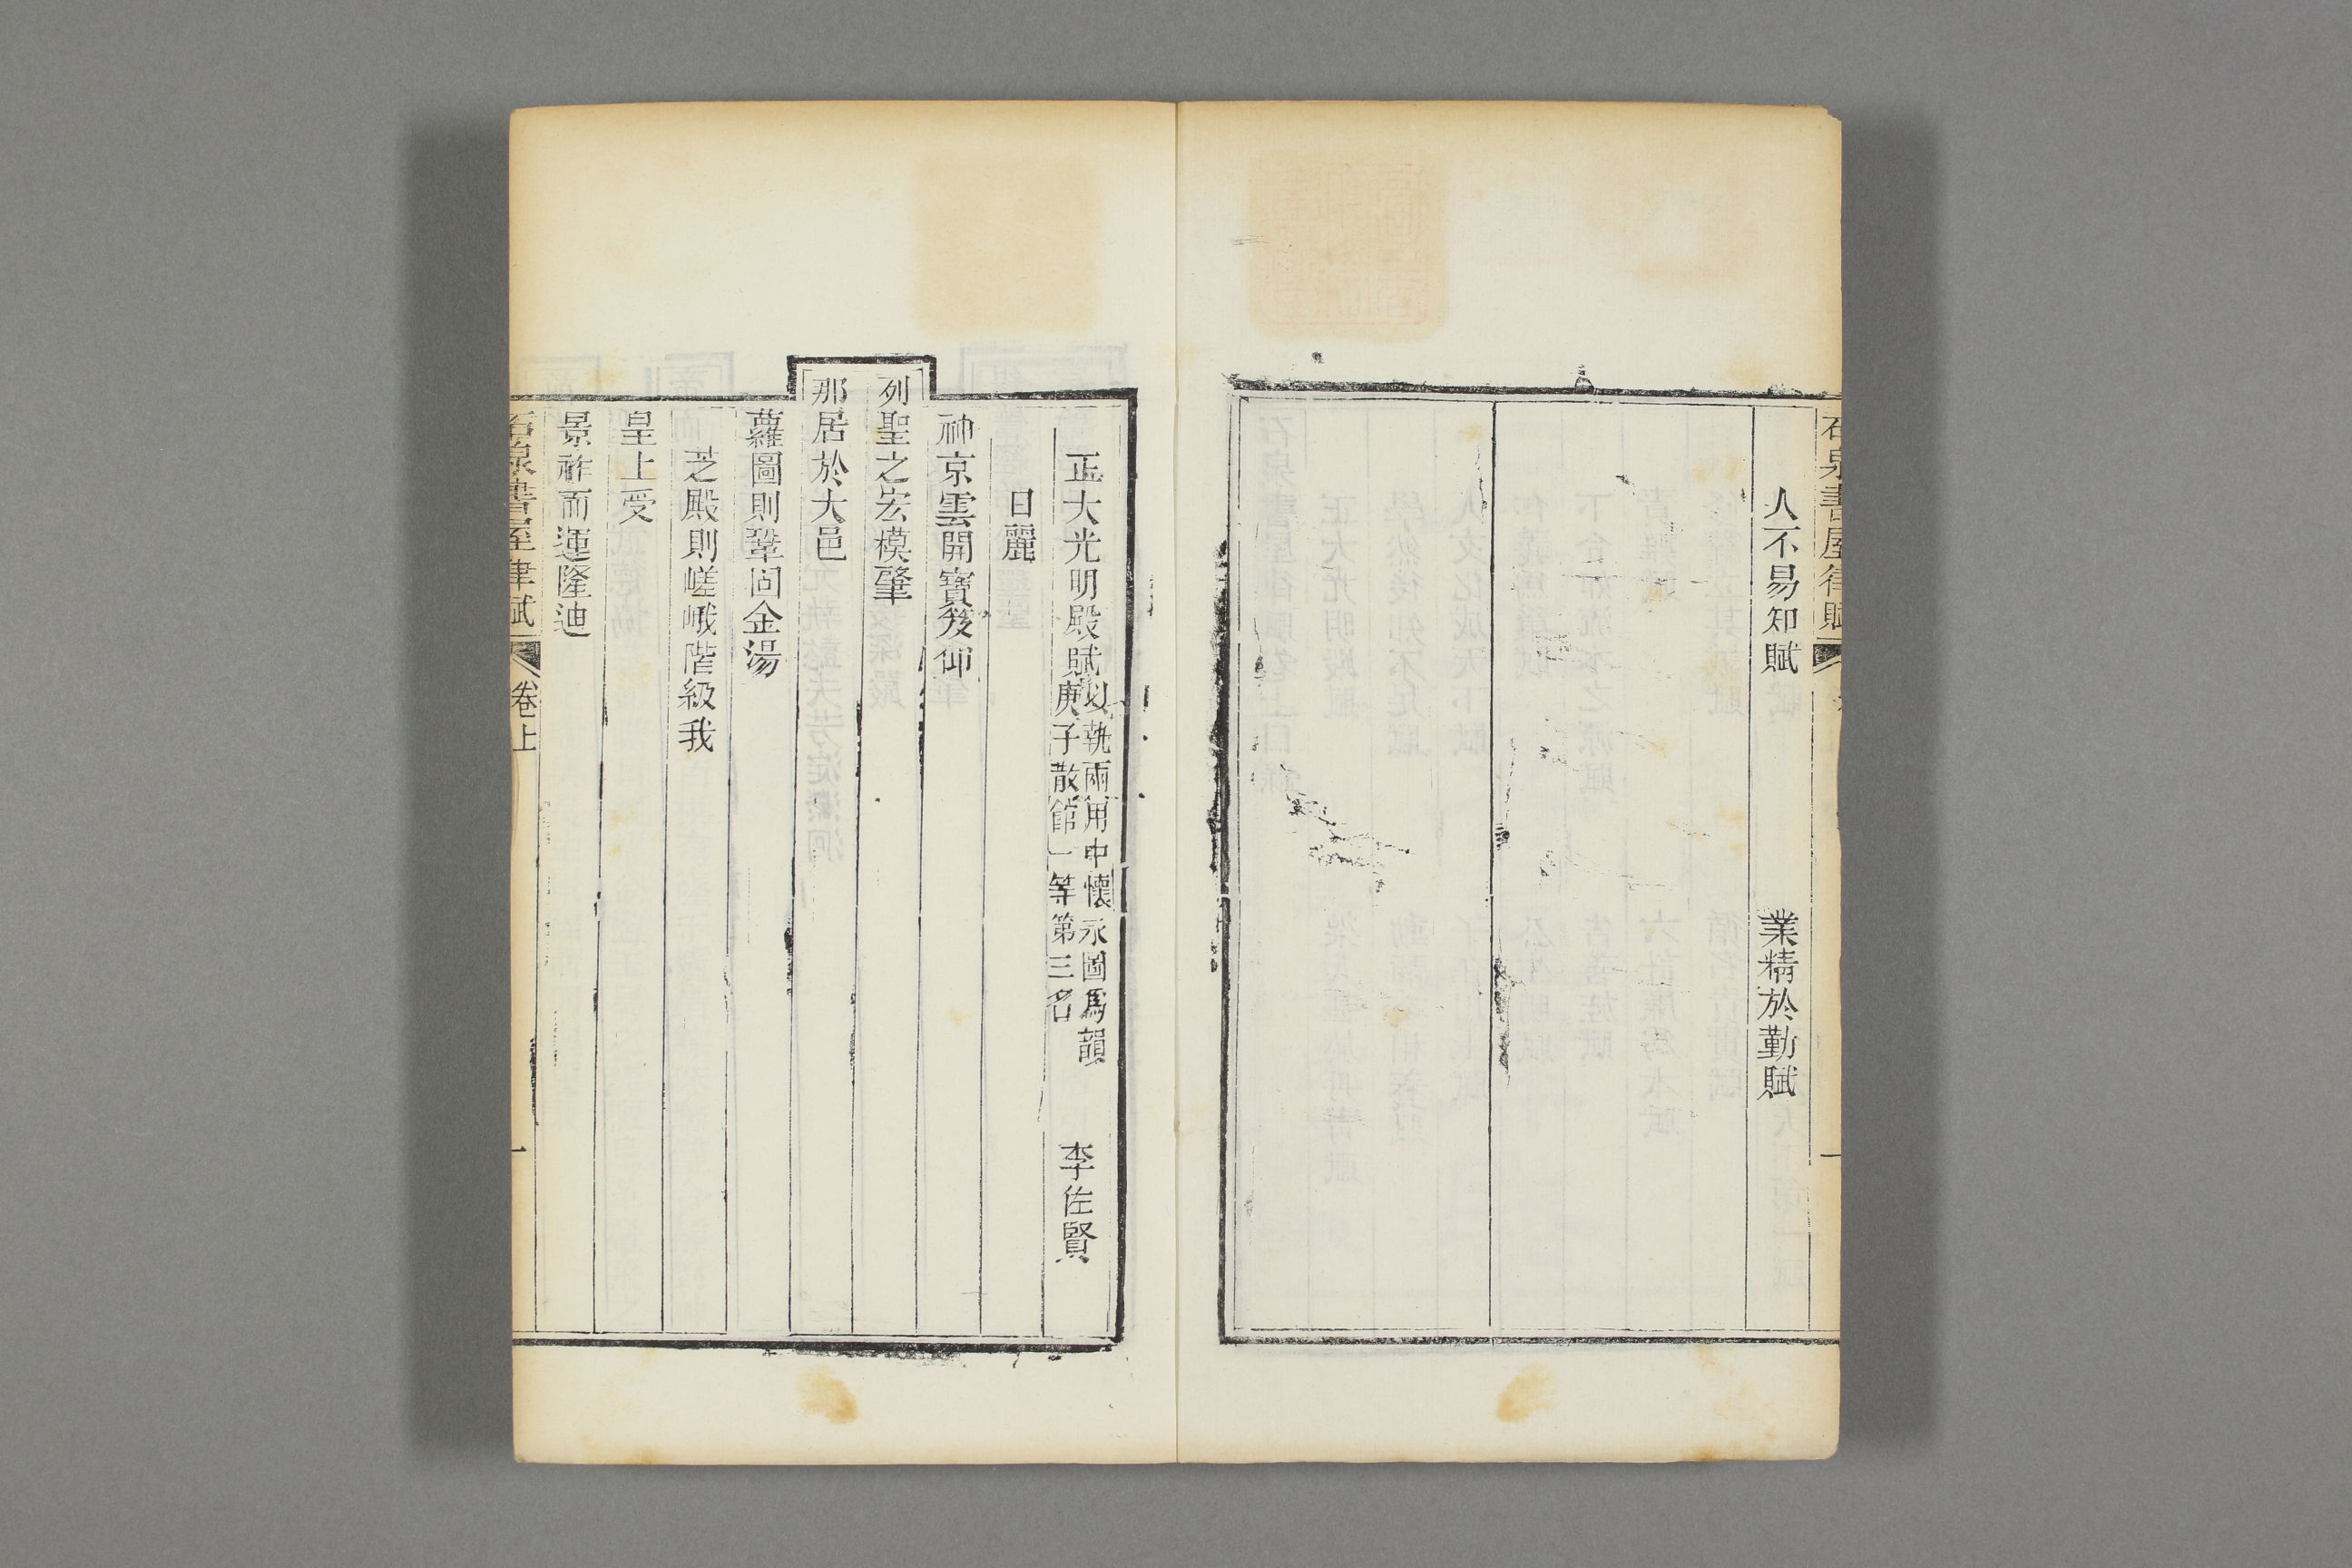 石泉書屋律賦
人不易知賦　業精於勤賦
正大光明殿賦 以執兩用中懷永圖爲韻 庚子散館一等第三名　李佐賢
日麗
神京雲開寶笈仰
列聖之宏模肇
那居於大邑
蘿圖則鞏固金湯
芝殿則嵯峨階級我
皇上受
景祚而運隆迪
石泉書屋律賦　卷上　一